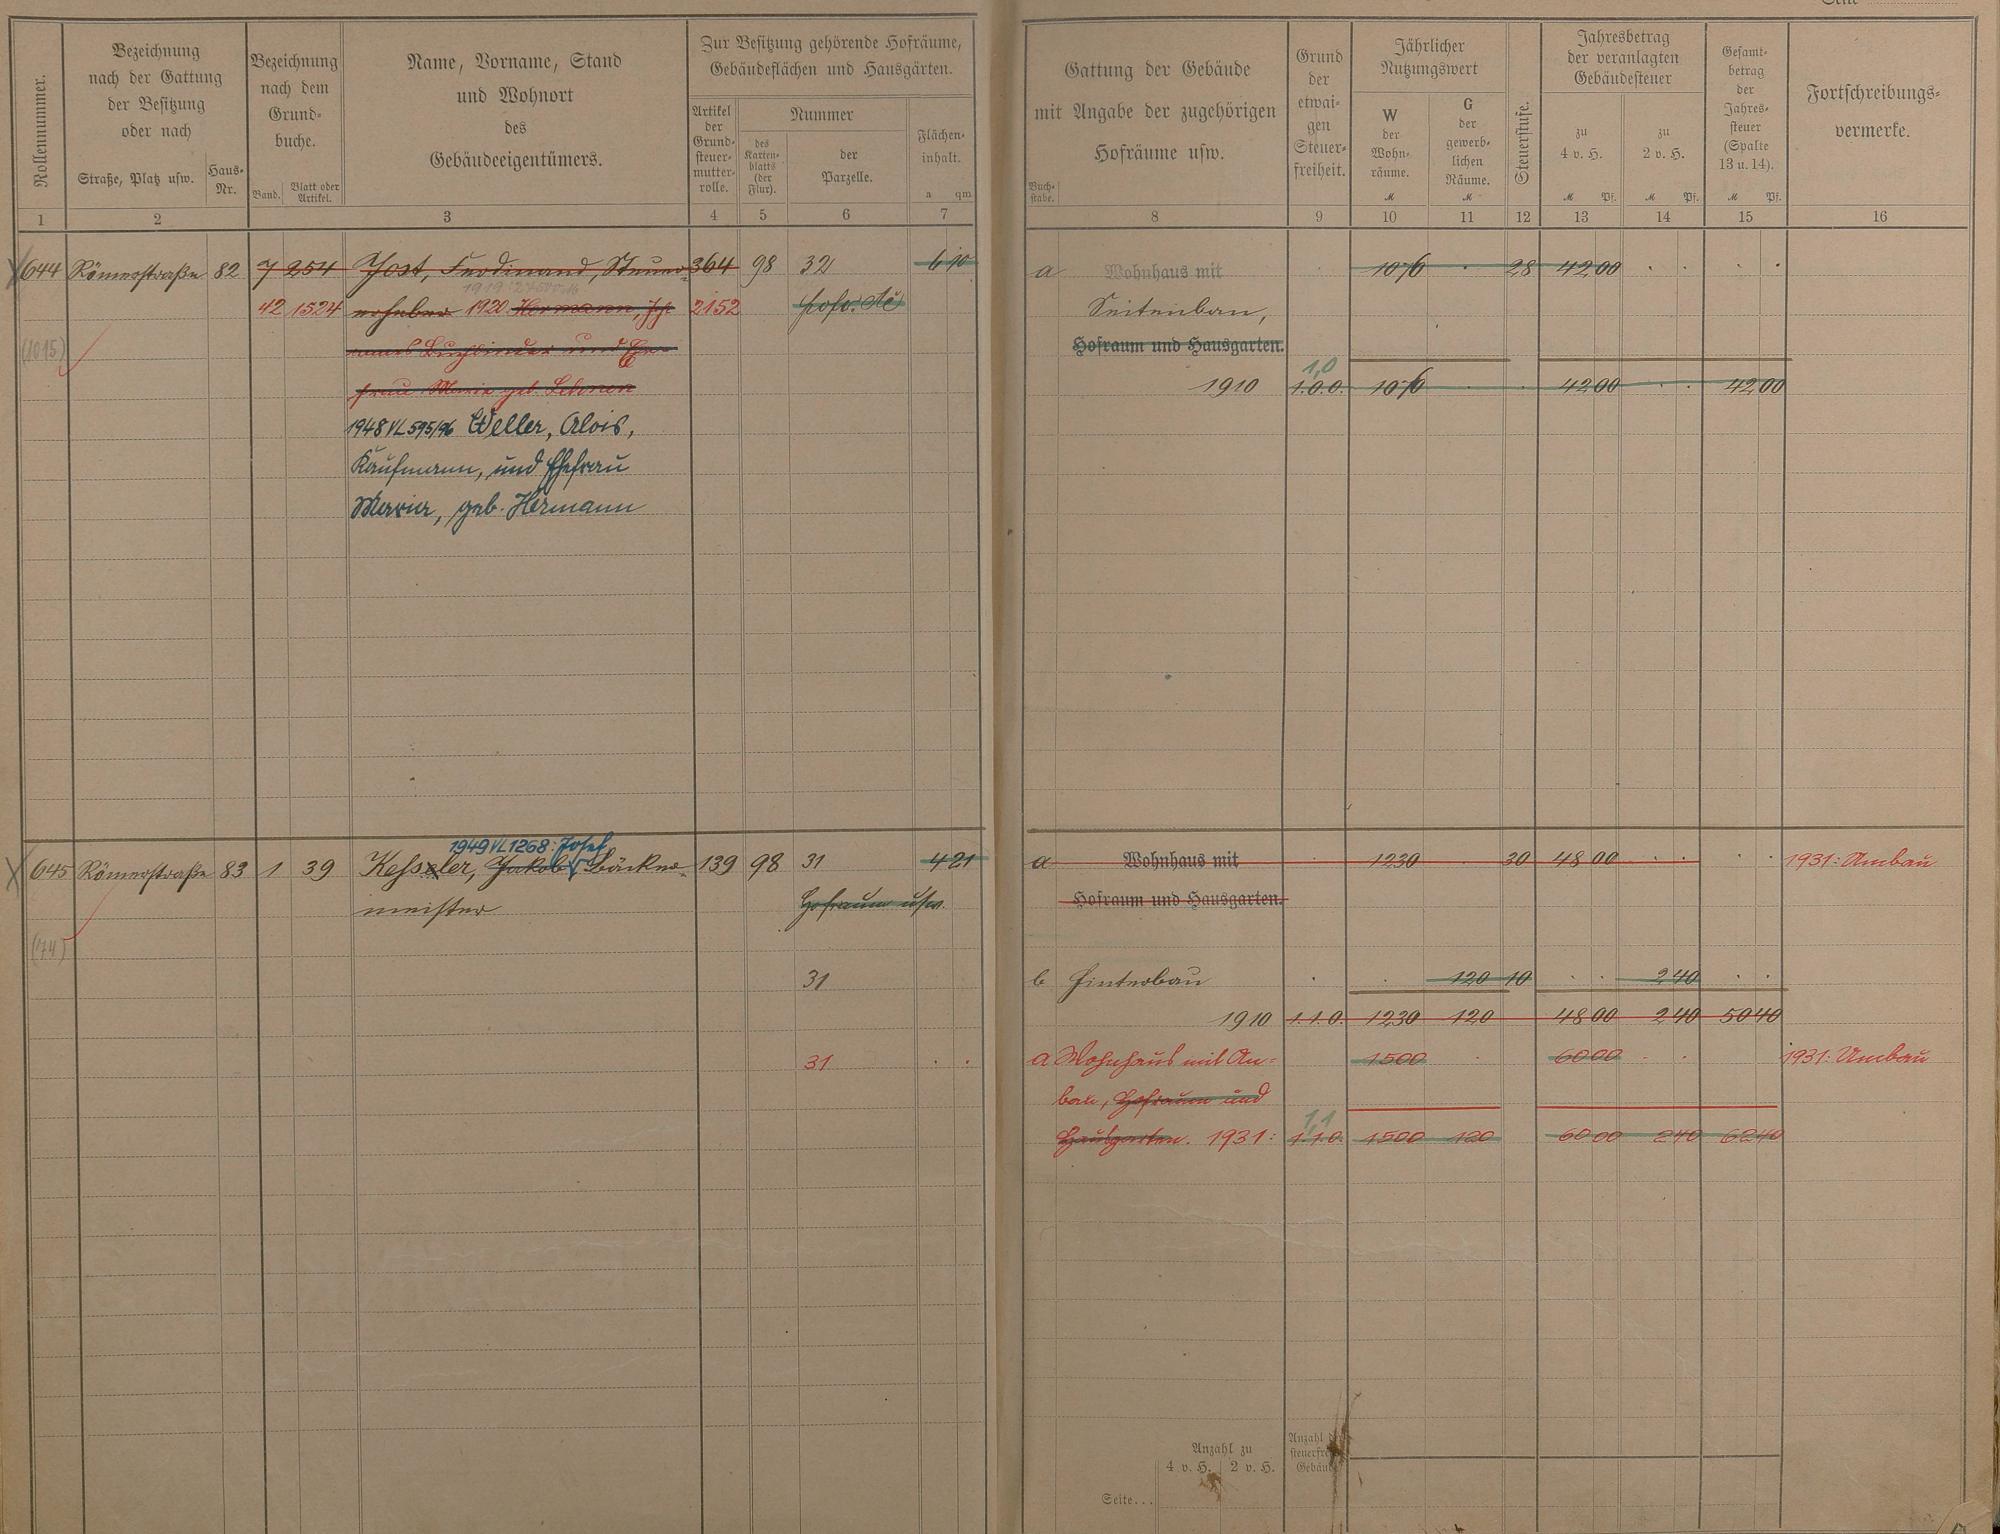 Seite
Rollennummer.
Bezeichnung
nach der Gattung
der Besitzung
oder nach
Straße, Platz usw.
Haus-
Nr.
Bezeichnung
nach dem
Grund-
buche.
Band.
Blatt oder
Artikel.
Name, Vorname, Stand
und Wohnort
des
Gebäudeeigentümers.
Zur Besitzung gehörende Hofräume,
Gebäudeflächen und Hausgärten.
Artikel
der
Grund-
steuer-
mutter-
rolle.
Nummer
des
Karten-
blatts
(der
Flur).
der
Parzelle.
Flächen-
inhalt.
a qm
1 2 3 4 5 6 7
Buch-
stabe.
Gattung der Gebäude
mit Angabe der zugehörigen
Hofräume usw.
Grund
der
etwai-
gen
Steuer-
freiheit.
Jährlicher
Nutzungswert
W
der
Wohn-
räume.
M
G
der
gewerb-
lichen
Räume.
M
Steuerstufe.
Jahresbetrag
der veranlagten
Gebäudesteuer
zu
4 v. H.
M Pf.
zu
2 v. H.
M Pf.
Gesamt-
betrag
der
Jahres-
steuer
(Spalte
13 u. 14).
M Pf.
Fortschreibungs-
vermerke.
8 9 10 11 12 13 14 15 16
644 Römerstraße 82 7 254 Jost, Ferdinand, Steuer- 364 98 32 6 10
42 1524 erheber 1920 Hermann, 2152
(1015)
frau Maria geb.
1948 VL 595/96 Weller, Alois,
Kaufmann, und Ehefrau
Maria, geb. Hermann
a Wohnhaus mit 28 42 00
Seitenbau,
Hofraum und Hausgarten.
1,0
1910 1.0.0. 42 00 42 00
1949 VL 1268: Josef
645 Römerstraße 83 1 39 Kessler, Jakob, Bäcker- 139 98 31 4 21
meister Hofraum usw.
(74)
31
31
a Wohnhaus mit 1230 30 48 00 1931: Umbau
Hofraum und Hausgarten.
b Hinterbau 120 10 2 40
1910 1.1.0. 1230 120 48 00 2 40 50 40
a Wohnhaus mit An- 1500 60 00 1931: Umbau
bau, Hofraum und
1,1
Hausgarten. 1931: 1.1.0. 1500 120 60 00 2 40 62 40
Anzahl zu
4 v. H. 2 v. H.
Anzahl der
steuerfreien
Gebäude
Seite...